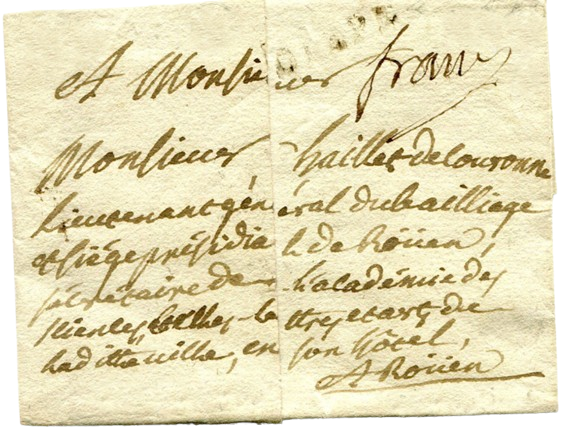 A Monsieur franc
Monsieur haillet de couronne
lieutenant général du bailliage
et siège présidial de Roüen,
sécrétaire de l'académie des
sciences, belles-lettres et arts de
ladite ville, en son hôtel,
A Roüen